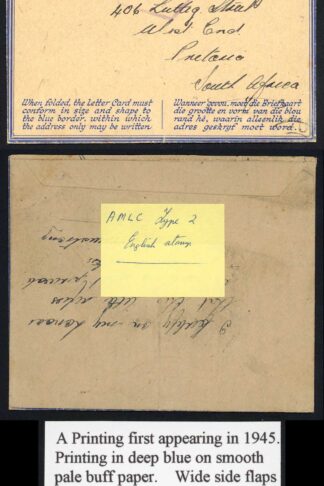 406 Luttig Street
West End
Pretoria
South Africa
When folded, the Letter Card must
conform in size and shape to
the blue border, within which
the address only may be written
Wanneer gevou, moet die Briefkaart
die grootte en vorm van die blou
rand hê, waarin alleenlik die
adres geskryf moet word.
AMLC Type 2
English stamp
I certify on my honour
that this
A Printing first appearing in 1945.
Printing in deep blue on smooth
pale buff paper. Wide side flaps